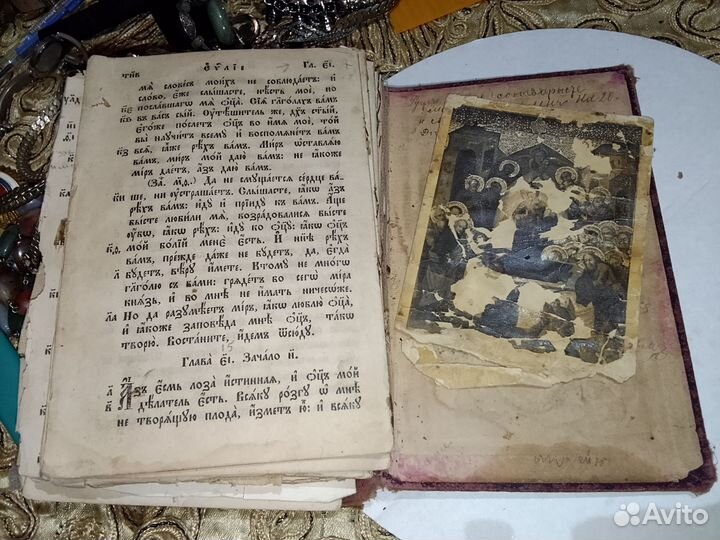 тн҃в ѹ҆лі́и Гл. є҃і.
мѧ̀ слове́съ мои́хъ не соблюда́етъ: и҆
сло́во, є҆́же слы́шасте, нѣ́сть моѐ, но
посла́вшагѡ мѧ̀ ѻ҆ц҃а̀. Сїѧ̑ глаго́лахъ ва́мъ
въ ва́съ сы́й. Оу҆тѣ́шитель же, дх҃ъ ст҃ы́й,
є҆го́же по́слетъ ѻ҆ц҃ъ во и҆́мѧ моѐ, то́й
вы̀ наꙋчи́тъ всемꙋ̀ и҆ воспомѧне́тъ ва́мъ
всѧ̑, ꙗ҆̀же рѣ́хъ ва́мъ. Ми́ръ ѡ҆ставлѧ́ю
ва́мъ, ми́ръ мо́й даю̀ ва́мъ: не ꙗ҆́коже
мі́ръ дае́тъ, а҆́зъ даю̀ ва́мъ.
(За҃. м҃ѳ.) Да не смꙋща́етсѧ се́рдце ва́-
к҃и ше, ни ᲂу҆страша́етъ. Слы́шасте, ꙗ҆́кѡ а҆́зъ
рѣ́хъ ва́мъ: и҆дꙋ̀ и҆ прїидꙋ̀ къ ва́мъ. А҆́ще
бы́сте люби́ли мѧ̀, возра́довалисѧ бы́сте
ᲂу҆́бѡ, ꙗ҆́кѡ рѣ́хъ: и҆дꙋ̀ ко ѻ҆ц҃ꙋ̀: ꙗ҆́кѡ ѻ҆ц҃ъ
мо́й бо́лїй менє̀ є҆́сть. И҆ нн҃ѣ рѣ́хъ
ва́мъ, пре́жде да́же не бꙋ́детъ, да, є҆гда̀
бꙋ́детъ, вѣ́рꙋ и҆́мете. Ктомꙋ̀ не мно́гѡ
гл҃го́лю съ ва́ми: грѧде́тъ бо сегѡ̀ мі́ра
кнѧ́зь, и҆ во мнѣ̀ не и҆́мать ничесо́же.
л҃а Но да разꙋмѣ́етъ мі́ръ, ꙗ҆́кѡ люблю̀ ѻ҆ц҃а̀,
и҆ ꙗ҆́коже заповѣ́да мнѣ̀ ѻ҆ц҃ъ, та́кѡ
творю̀. Воста́ните, и҆́демъ ѿсю́дꙋ.
15
Глава̀ є҃і. Зача́ло н҃.
а҃ А҆́зъ є҆́смь лоза̀ и҆́стинная, и҆ ѻ҆ц҃ъ мо́й
в҃ дѣ́латель є҆́сть. Всѧ́кꙋ ро́згꙋ ѡ҆ мнѣ̀
не творѧ́щꙋю плода̀, и҆́зметъ ю҆̀: и҆ всѧ́кꙋ
Avito